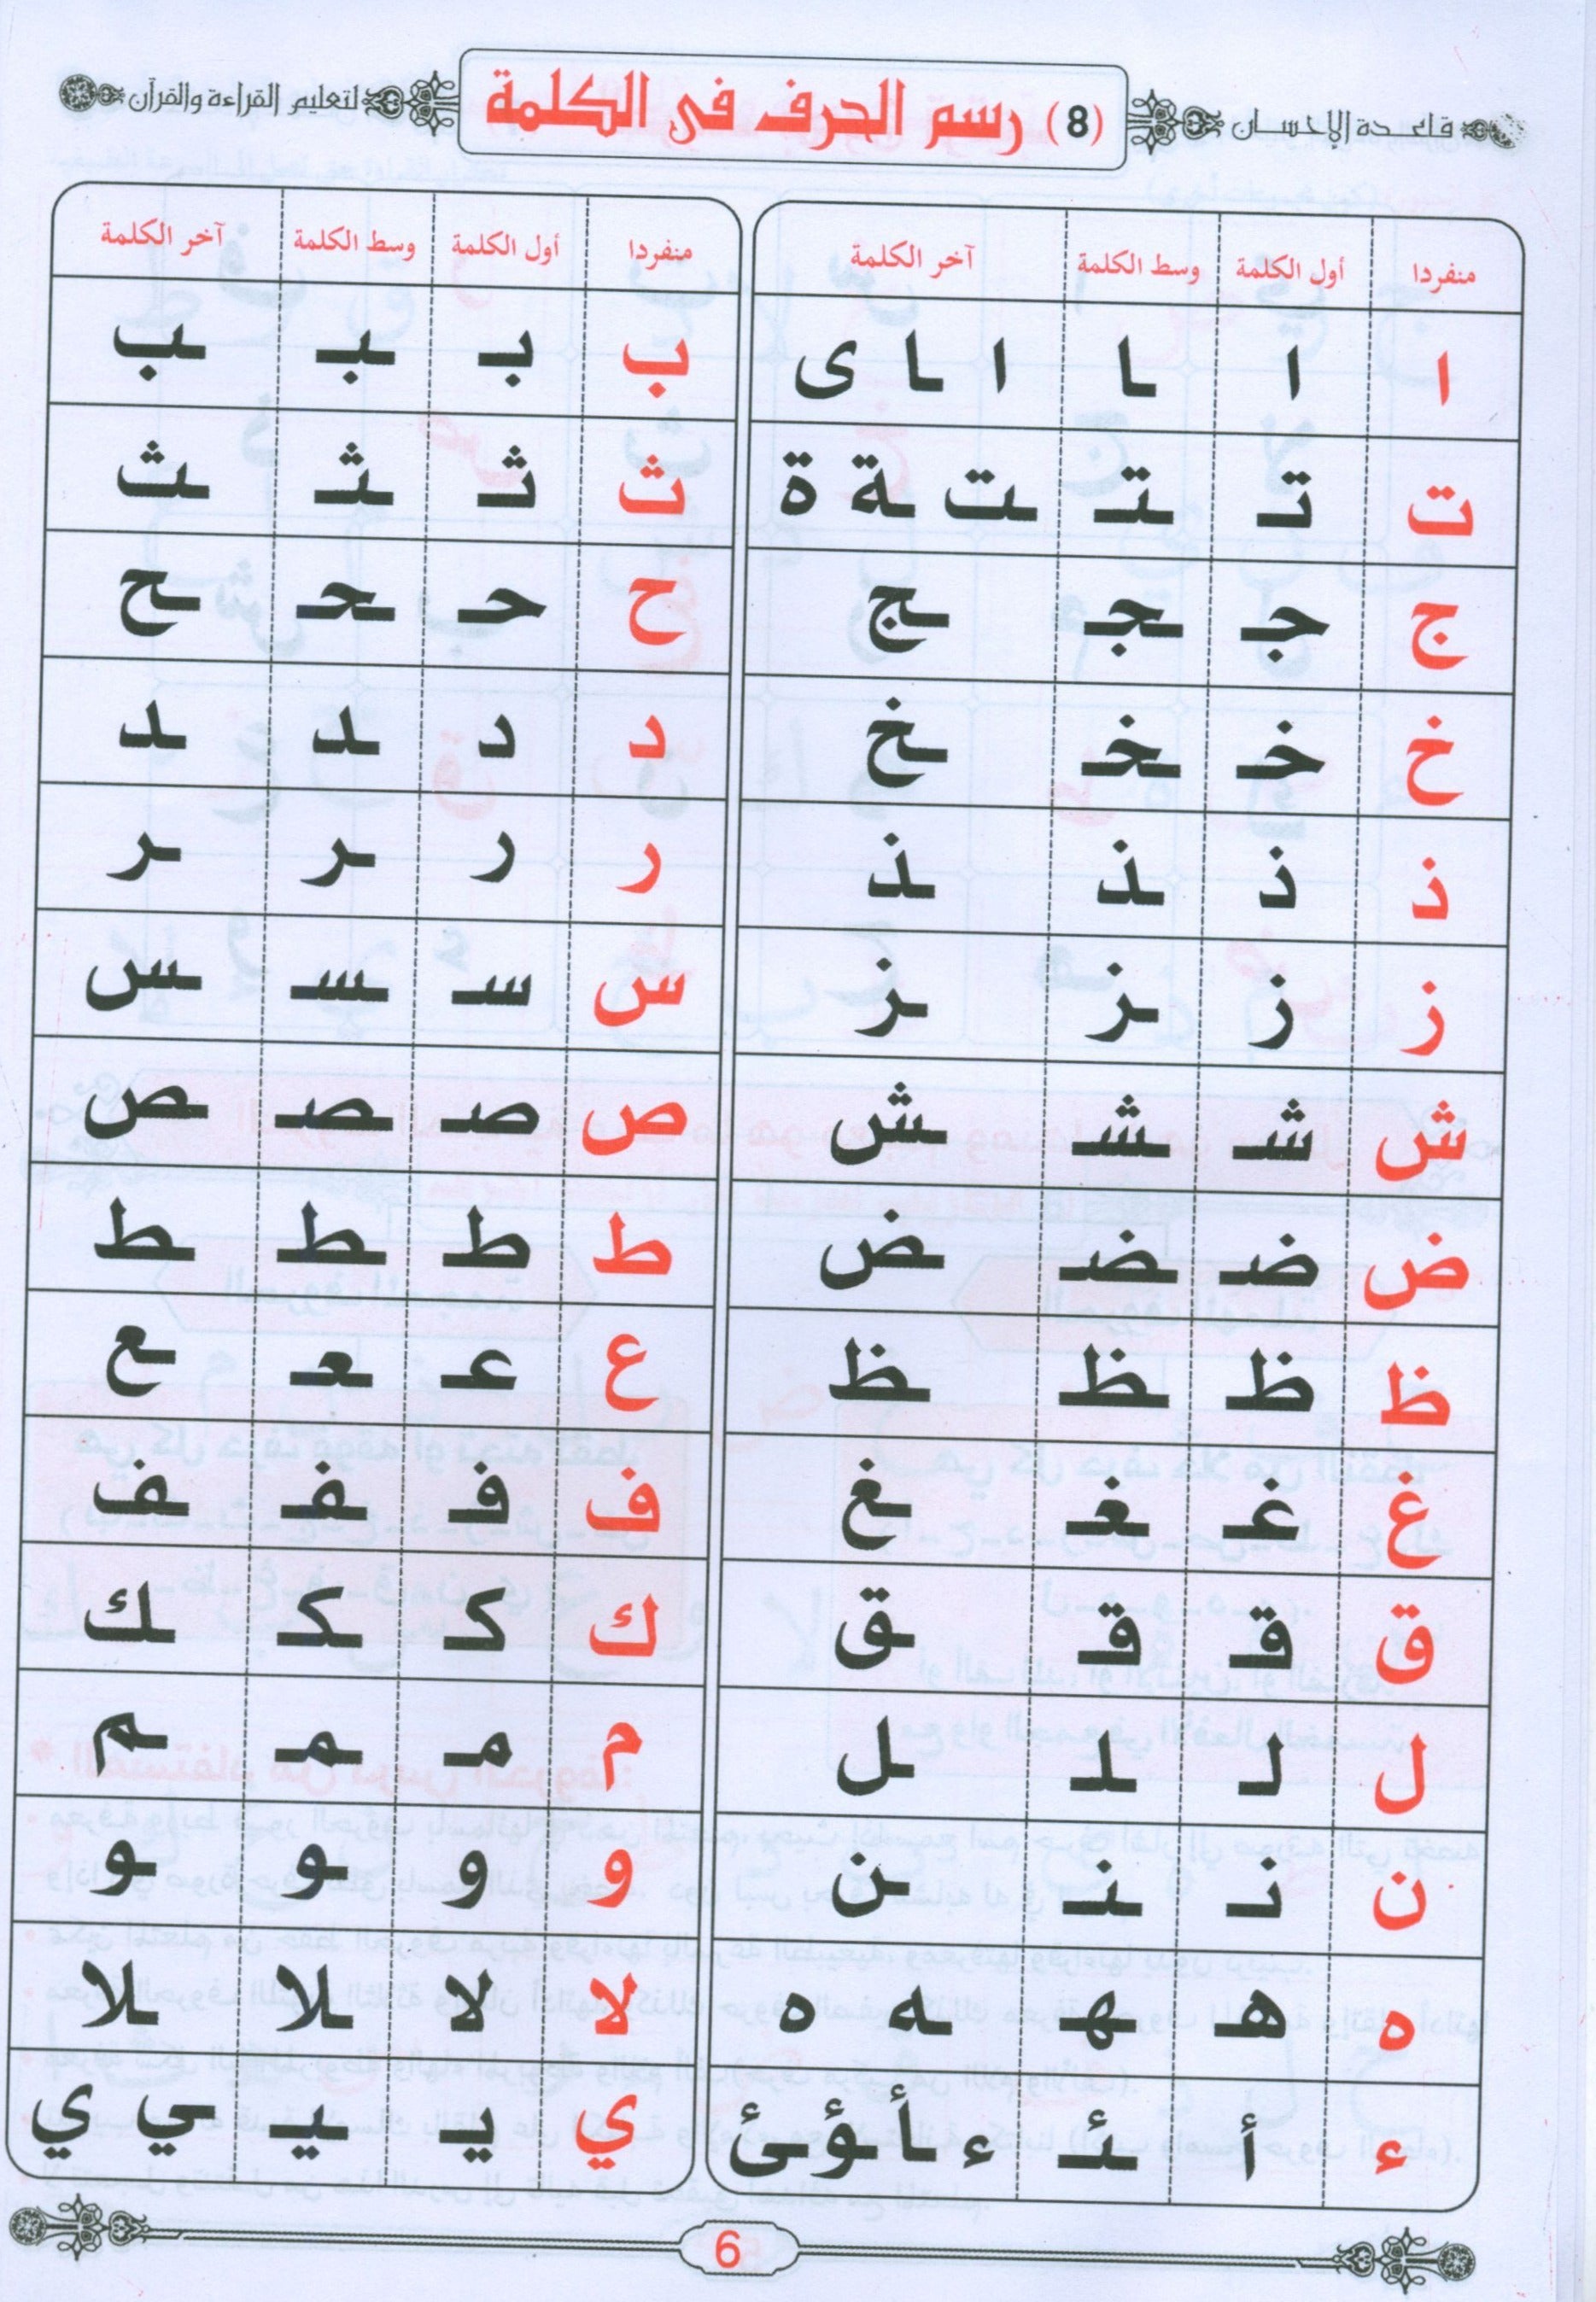 قاعدة الإحسان (8) رسم الحرف فى الكلمة لتعليم القراءة والقرآن
منفردا أول الكلمة وسط الكلمة آخر الكلمة منفردا أول الكلمة وسط الكلمة آخر الكلمة
ا ا ـا ا ـا ى ب بـ ـبـ ـب
ت تـ ـتـ ـت ـة ة ث ثـ ـثـ ـث
ج جـ ـجـ ـج ح حـ ـحـ ـح
خ خـ ـخـ ـخ د د ـد ـد
ذ ذ ـذ ـذ ر ر ـر ـر
ز ز ـز ـز س سـ ـسـ ـس
ش شـ ـشـ ـش ص صـ ـصـ ـص
ض ضـ ـضـ ـض ط ط ـط ـط
ظ ظ ـظ ـظ ع عـ ـعـ ـع
غ غـ ـغـ ـغ ف فـ ـفـ ـف
ق قـ ـقـ ـق ك كـ ـكـ ـك
ل لـ ـلـ ـل م مـ ـمـ ـم
ن نـ ـنـ ـن و و ـو ـو
ه هـ ـهـ ـه ه لا لا ـلا ـلا
ء أ ـئـ ء ـأ ـؤ ـئ ي يـ ـيـ ـي ي
6